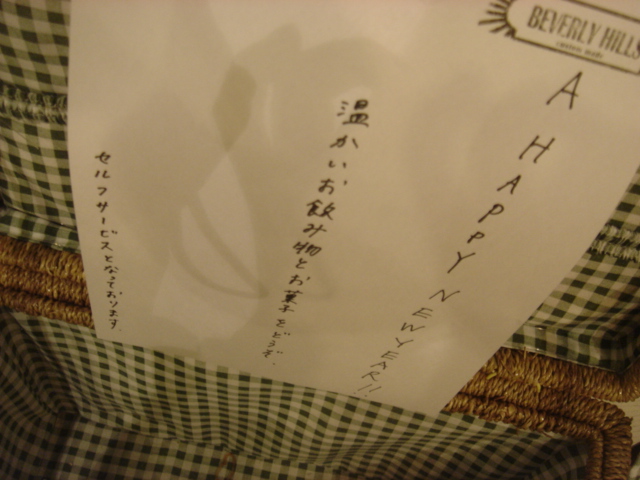 BEVERLY HILLS
A HAPPY NEW YEAR!!
温かい、お飲み物とお菓子をどうぞ。
セルフサービスとなっております。